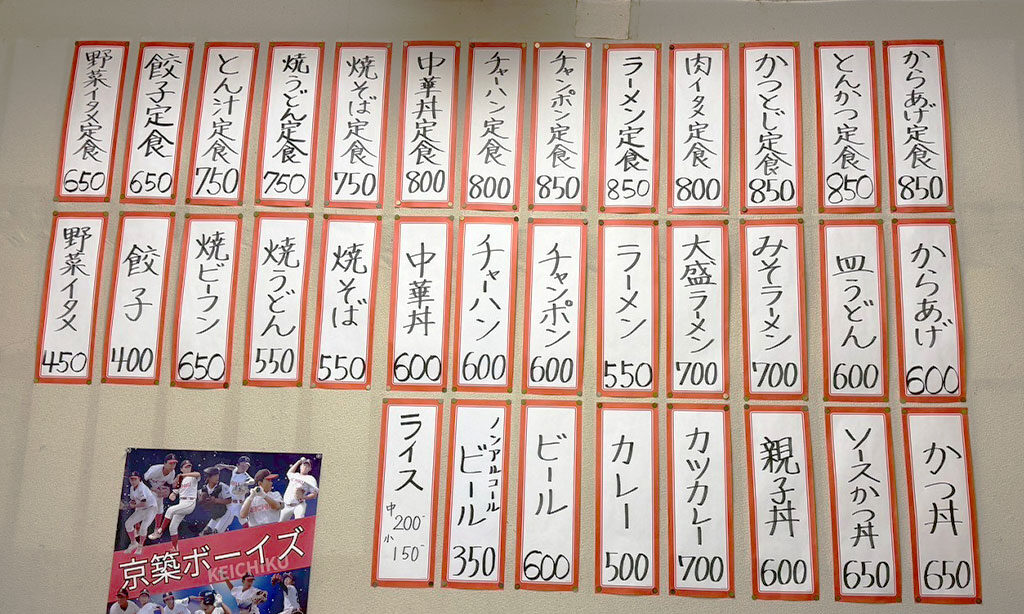 からあげ定食 850
とんかつ定食 850
かつとじ定食 850
肉イタメ定食 800
ラーメン定食 850
チャンポン定食 850
チャーハン定食 800
中華丼定食 800
焼そば定食 750
焼うどん定食 750
とん汁定食 750
餃子定食 650
野菜イタメ定食 650
からあげ 600
皿うどん 600
みそラーメン 700
大盛ラーメン 700
ラーメン 550
チャンポン 600
チャーハン 600
中華丼 600
焼そば 550
焼うどん 550
焼ビーフン 650
餃子 400
野菜イタメ 450
かつ丼 650
ソースかつ丼 650
親子丼 600
カツカレー 700
カレー 500
ビール 600
ノンアルコール
ビール 350
ライス
中 200-
小 150-
京築ボーイズ
KEICHIKU